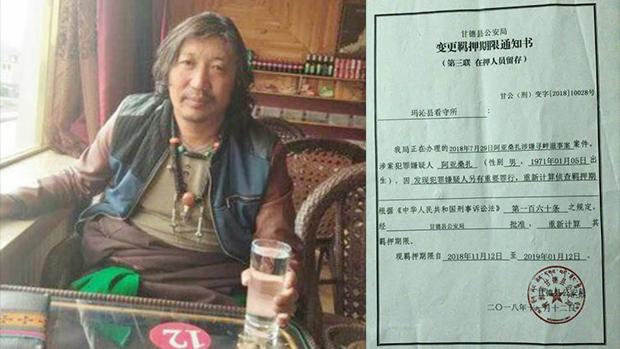 12
甘德县公安局
变更羁押期限通知书
（第三联 在押人员留存）
甘公（刑）变字[2018]10028号
玛沁县看守所 ：
我局正在办理的2018年7月29日阿亚桑扎涉嫌寻衅滋事案 案件，
涉案犯罪嫌疑人 阿亚桑扎 （性别 男， 1971年01月05日 出
生），因 发现犯罪嫌疑人另有重要罪行，重新计算侦查羁押期
根据《中华人民共和国刑事诉讼法》 第一百六十条 之规定，
经 甘德县公安局 批准， 重新计算 其
羁押期限。
现羁押期限自 2018年11月12日 至 2019年01月12日。
甘德县公安局
二〇一八年十一月十二日